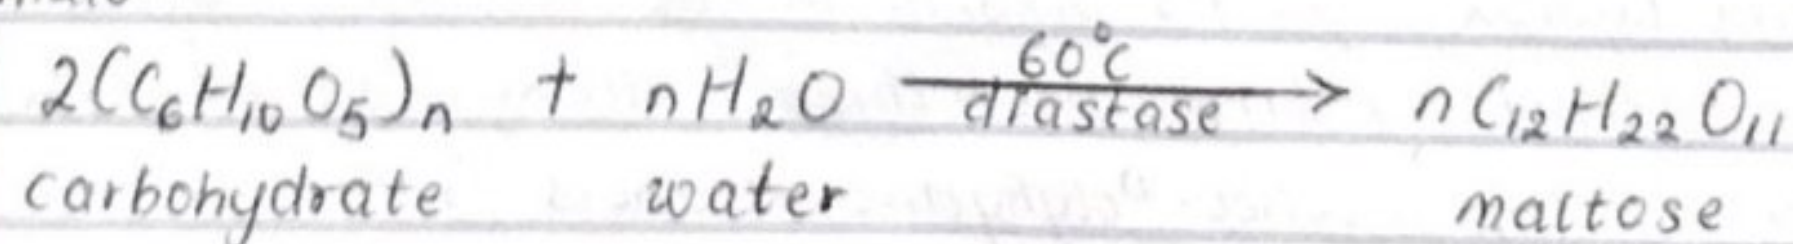 2(C₆H₁₀O₅)ₙ + nH₂O 60°C diastase → nC₁₂H₂₂O₁₁
carbohydrate water maltose